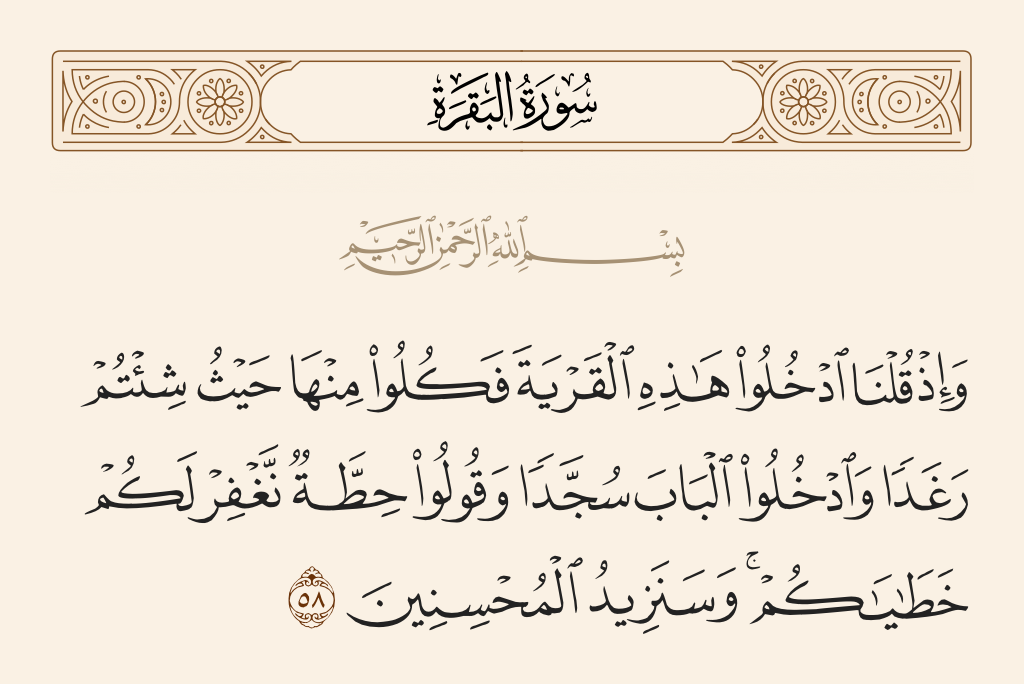 سُورَةُ البَقَرَةِ
بِسْمِ ٱللَّهِ ٱلرَّحْمَٰنِ ٱلرَّحِيمِ
وَإِذْ قُلْنَا ٱدْخُلُوا۟ هَـٰذِهِ ٱلْقَرْيَةَ فَكُلُوا۟ مِنْهَا حَيْثُ شِئْتُمْ
رَغَدًا وَٱدْخُلُوا۟ ٱلْبَابَ سُجَّدًا وَقُولُوا۟ حِطَّةٌ نَّغْفِرْ لَكُمْ
خَطَـٰيَـٰكُمْ ۚ وَسَنَزِيدُ ٱلْمُحْسِنِينَ ٥٨